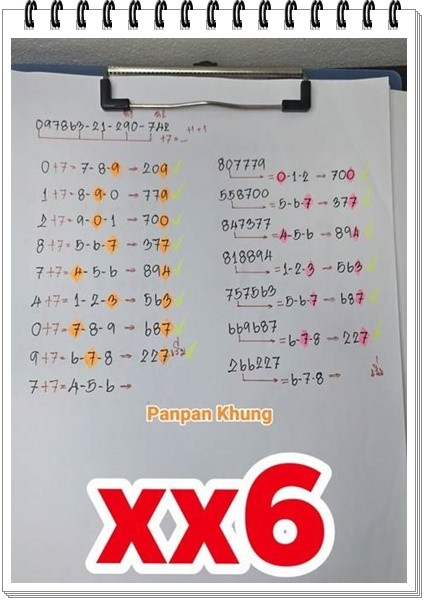 097863-21-290-742
+7=_ +1+1
0+7=7-8-9→209
1+7=8-9-0→779
2+7=9-0-1→700
8+7=5-6-7→377
7+7=4-5-6→894
4+7=1-2-3→563
0+7=7-8-9→687
9+7=6-7-8→227
7+7=4-5-6→
807779
=0-1-2→700
558700
=5-6-7→377
847377
=4-5-6→894
818894
=1-2-3→563
757563
=5-6-7→687
669687
=6-7-8→227
266227
=6-7-8→
Panpan Khung
xx6